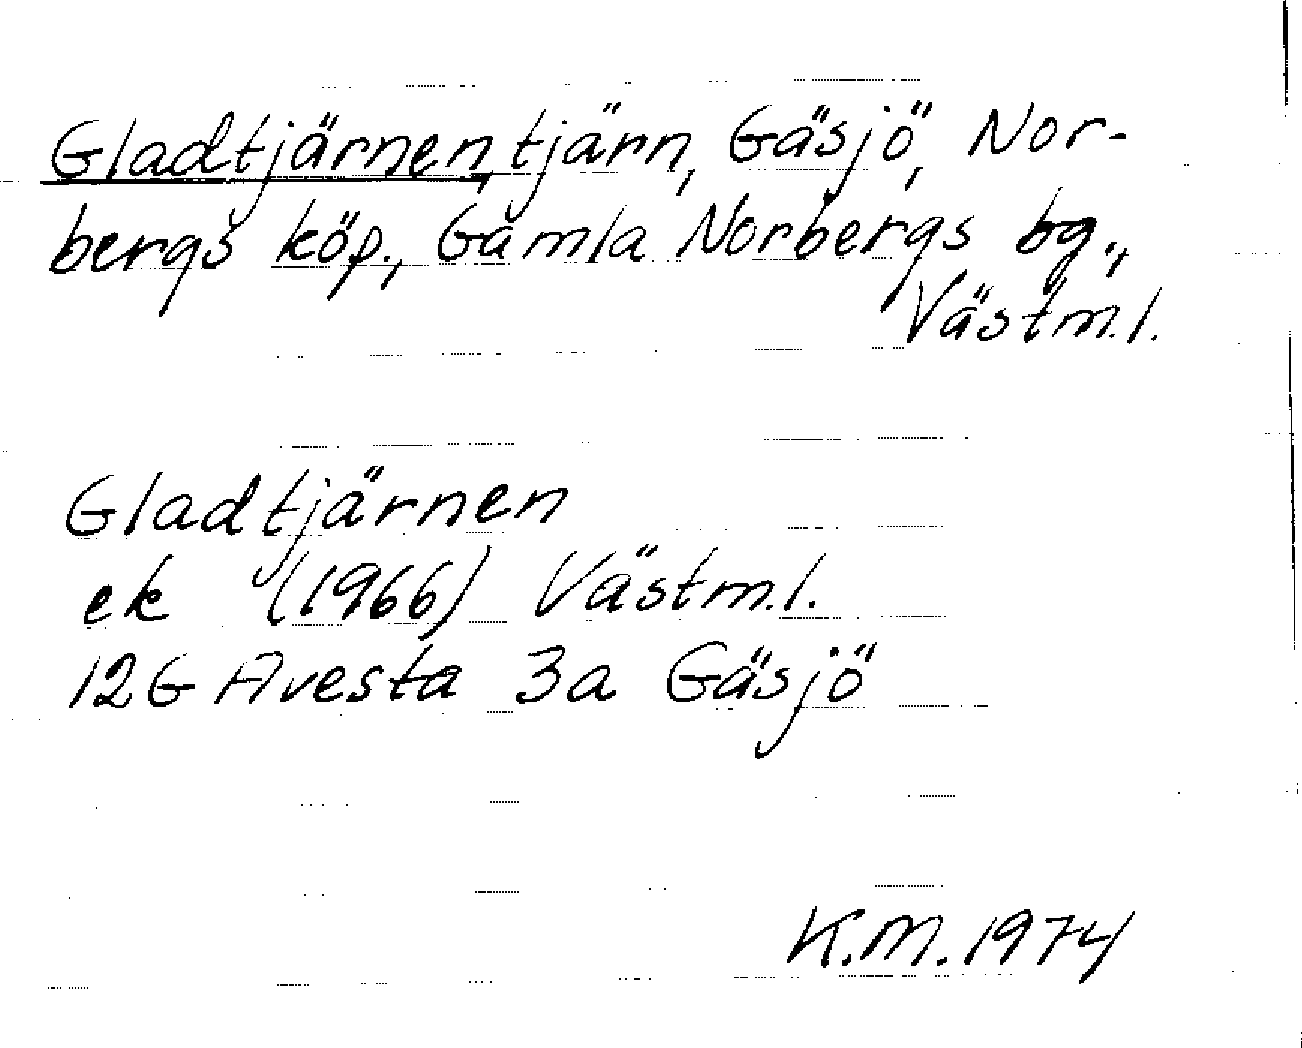 Gladtjärnen, tjärn, Gäsjö, Nor-
bergs köp., Gamla Norbergs bg.,
Västm.l.
Gladtjärnen
ek (1966) Västm.l.
12G Avesta 3a Gäsjö
K.M. 1974